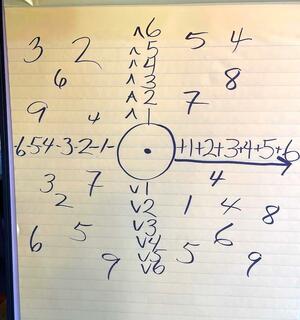 ^6
3 2 ^5 5 4
^4
6 ^3 8
^2 7
9 4 ^1
-6-5-4-3-2-1- +1+2+3+4+5+6
3 7 v1 4
2 v2 1 4 8
v3
6 5 v4 6
v5 5
9 v6 9